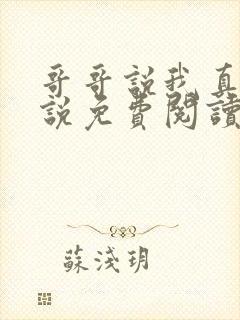 哥哥說我真
說免費閱讀
蘇淺玥